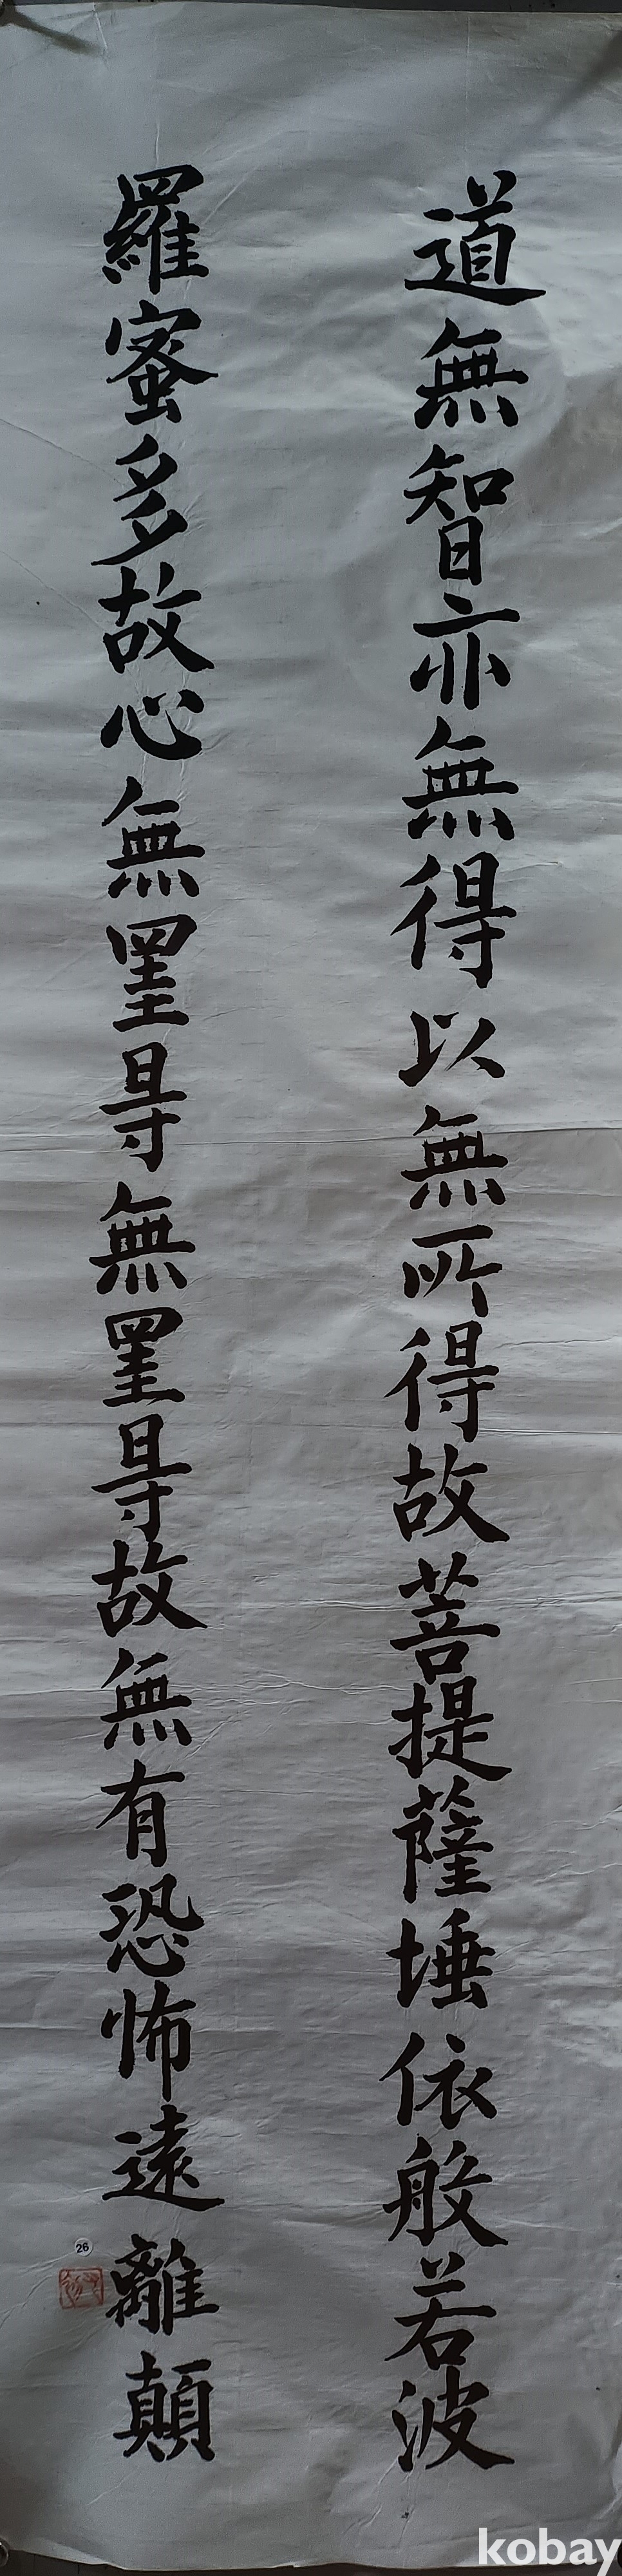 道無智亦無得以無所得故菩提薩埵依般若波
羅蜜多故心無罣㝵無罣㝵故無有恐怖遠離顛
26
kobay